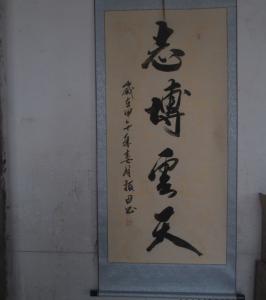 志博雲天
歲在甲午年春月振田書